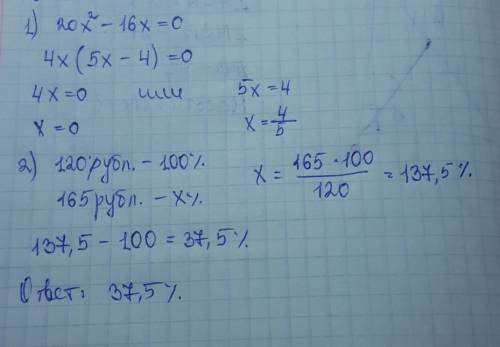 1) 20x² - 16x = 0
4x(5x - 4) = 0
4x = 0 или 5x = 4
x = 0 x = 4/5
2) 120 рубл. - 100%.
165 рубл. - x%.
x = 165 · 100 / 120 = 137,5%
137,5 - 100 = 37,5%
Ответ: 37,5%.